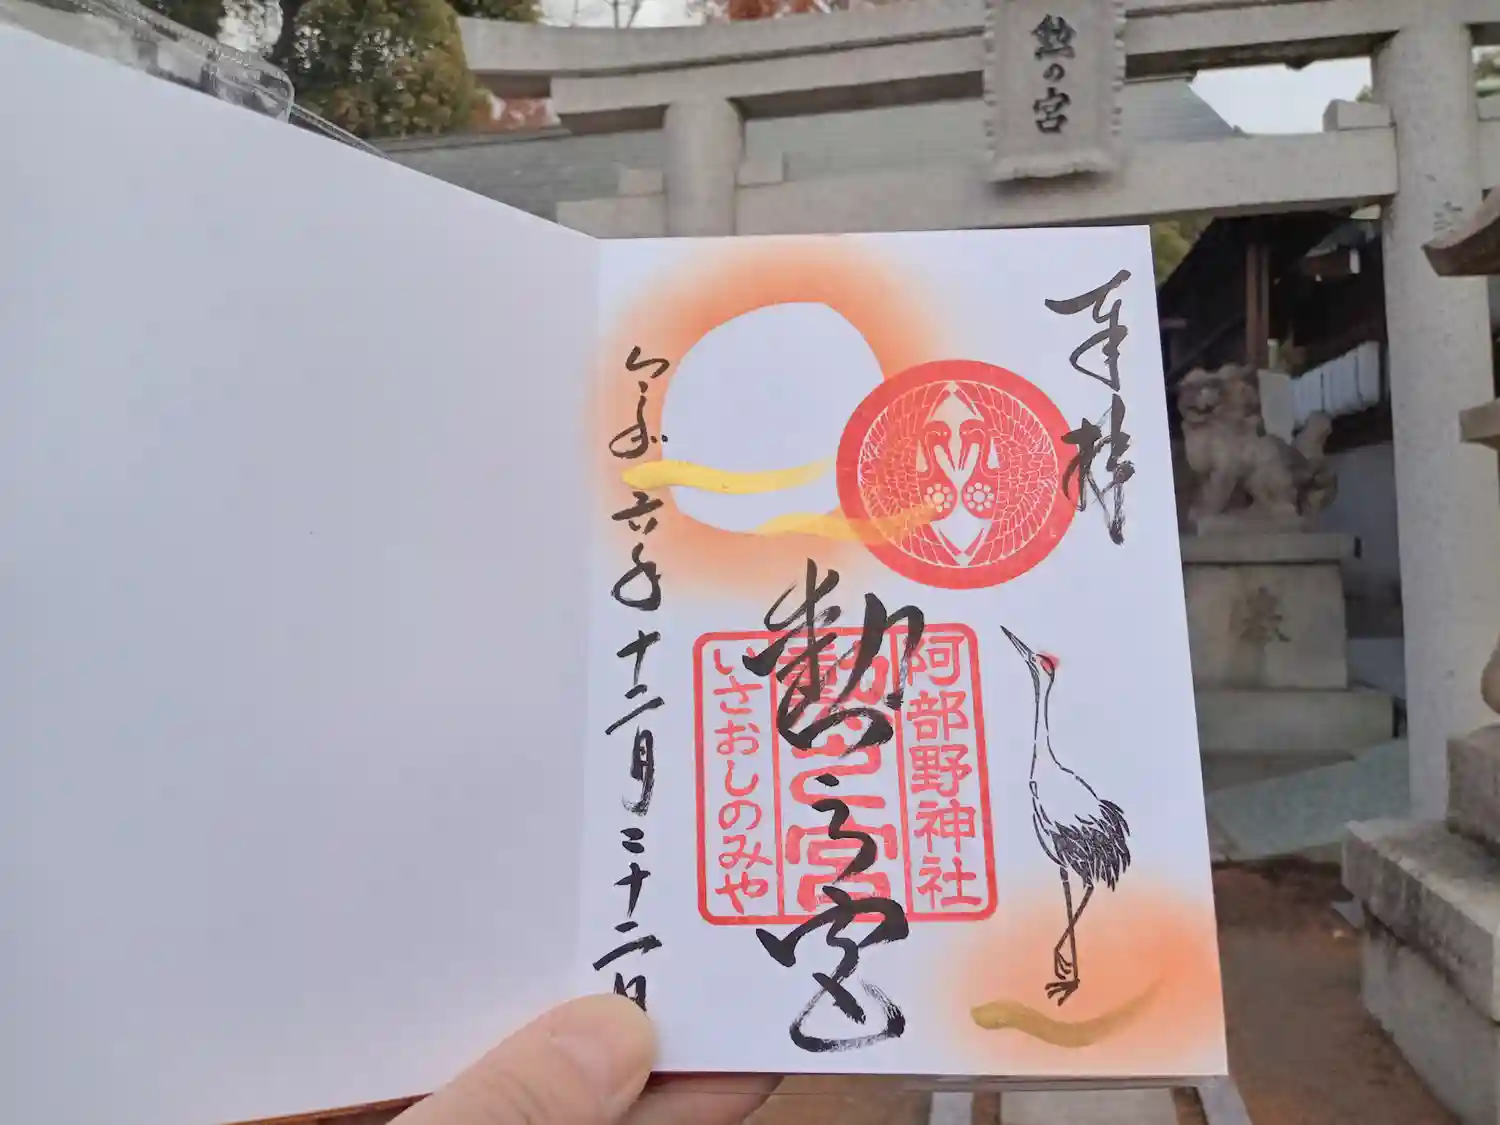 勲の宮
奉拝
阿部野神社
勲之宮
勲之宮
いさおしのみや
令和六年十二月二十二日